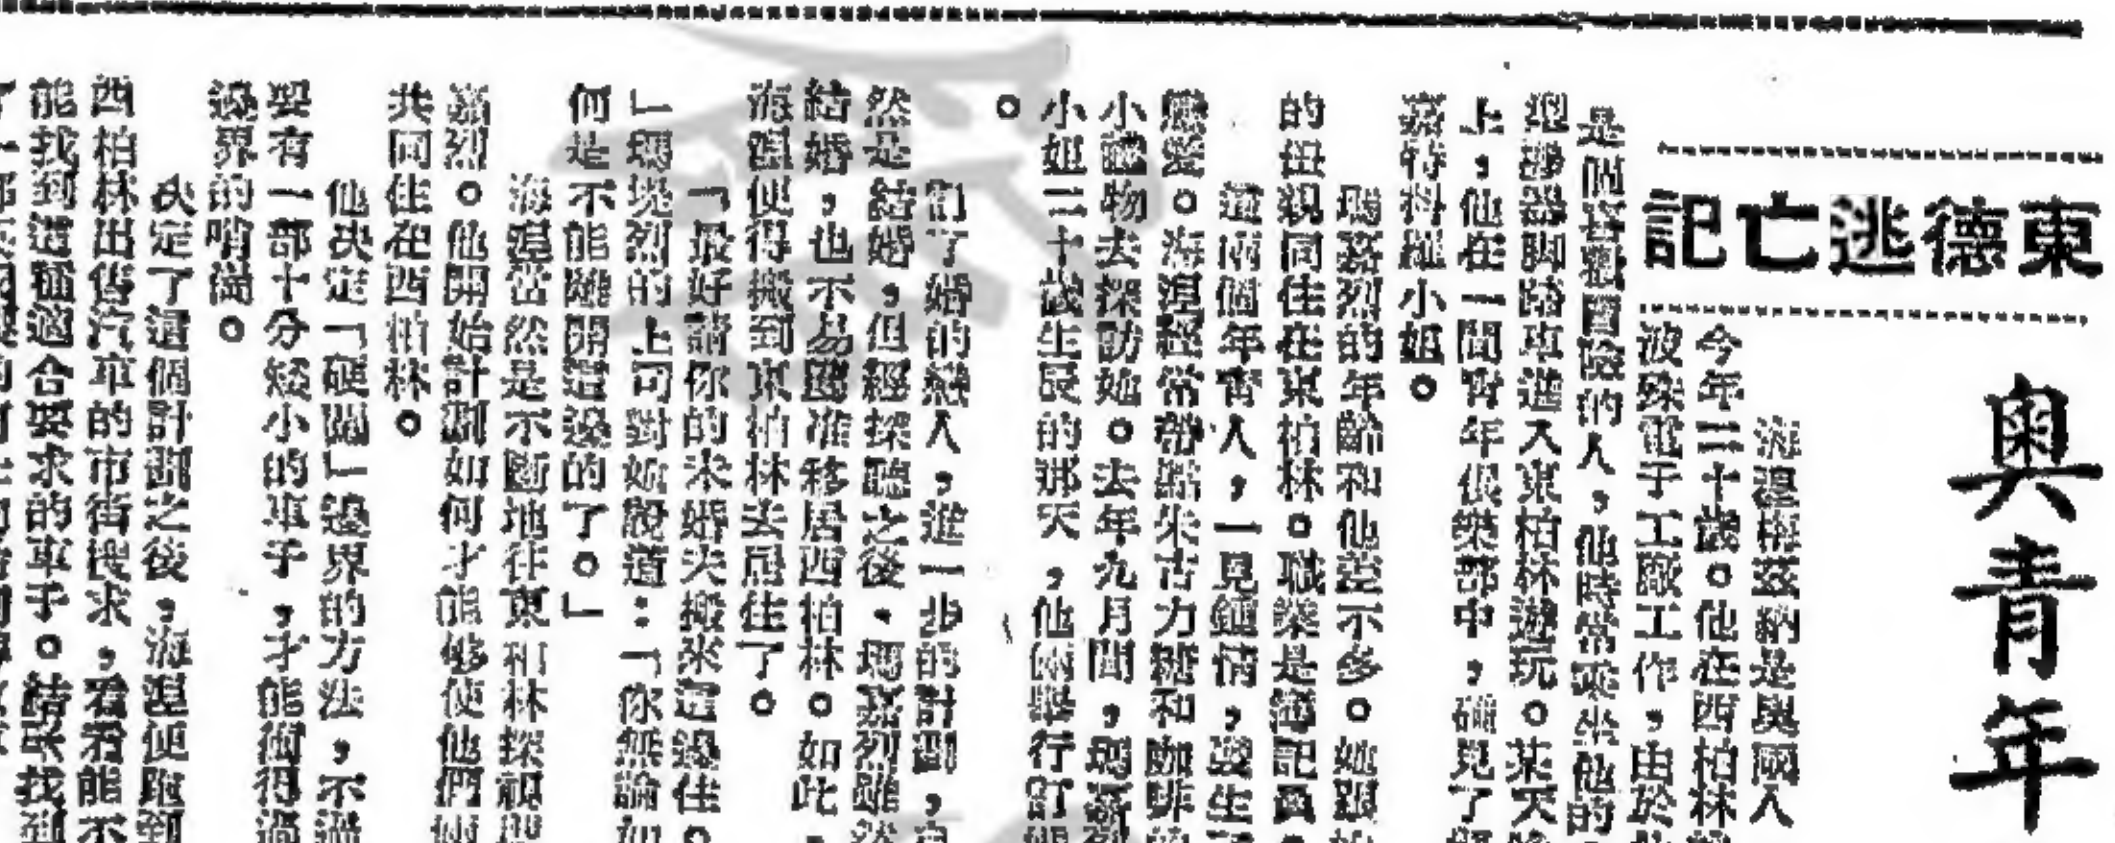 東德逃亡記
奧青年
海湼梅茲納是奧國人
今年二十歲。他在西柏林
波殊電子工廠工作，由於
是個 的人，他時常乘坐他的
脚踏車進入東柏林遊玩。某天
上，他在一間青年俱樂部中，碰見了
嘉特料 小姐。
瑪嘉烈的年齡和他差不多。她跟
的母親同住在東柏林。職業是簿記員。
這兩個年青人，一見鍾情，發生
戀愛。海湼經常帶點朱古力糖和咖啡
小禮物去探訪她。去年九月間，瑪嘉烈
小姐二十歲生辰的那天，他倆舉行訂婚
。
們了婚的戀人，進一步的計劃，自
然是結婚，但經探聽之後，瑪嘉烈雖然
結婚，也不易獲准移居西柏林。如此，
海湼便得搬到東柏林去居住了。
「最好請你的未婚夫搬來這邊住。
」瑪嘉烈的上司對她說道：「你無論如
何是不能離開這邊的了。」
海湼當然是不斷地往東柏林探視
嘉烈。他開始計劃如何才能够使他們倆
共同住在西柏林。
他决定「硬闖」邊界的方法，不過
要有一部十分矮小的車子，才能衝得過
邊界的哨崗。
决定了這個計劃之後，海湼便跑到
西柏林出售汽車的市街搜求，看看能不
能找到這種適合要求的車子。結果找到